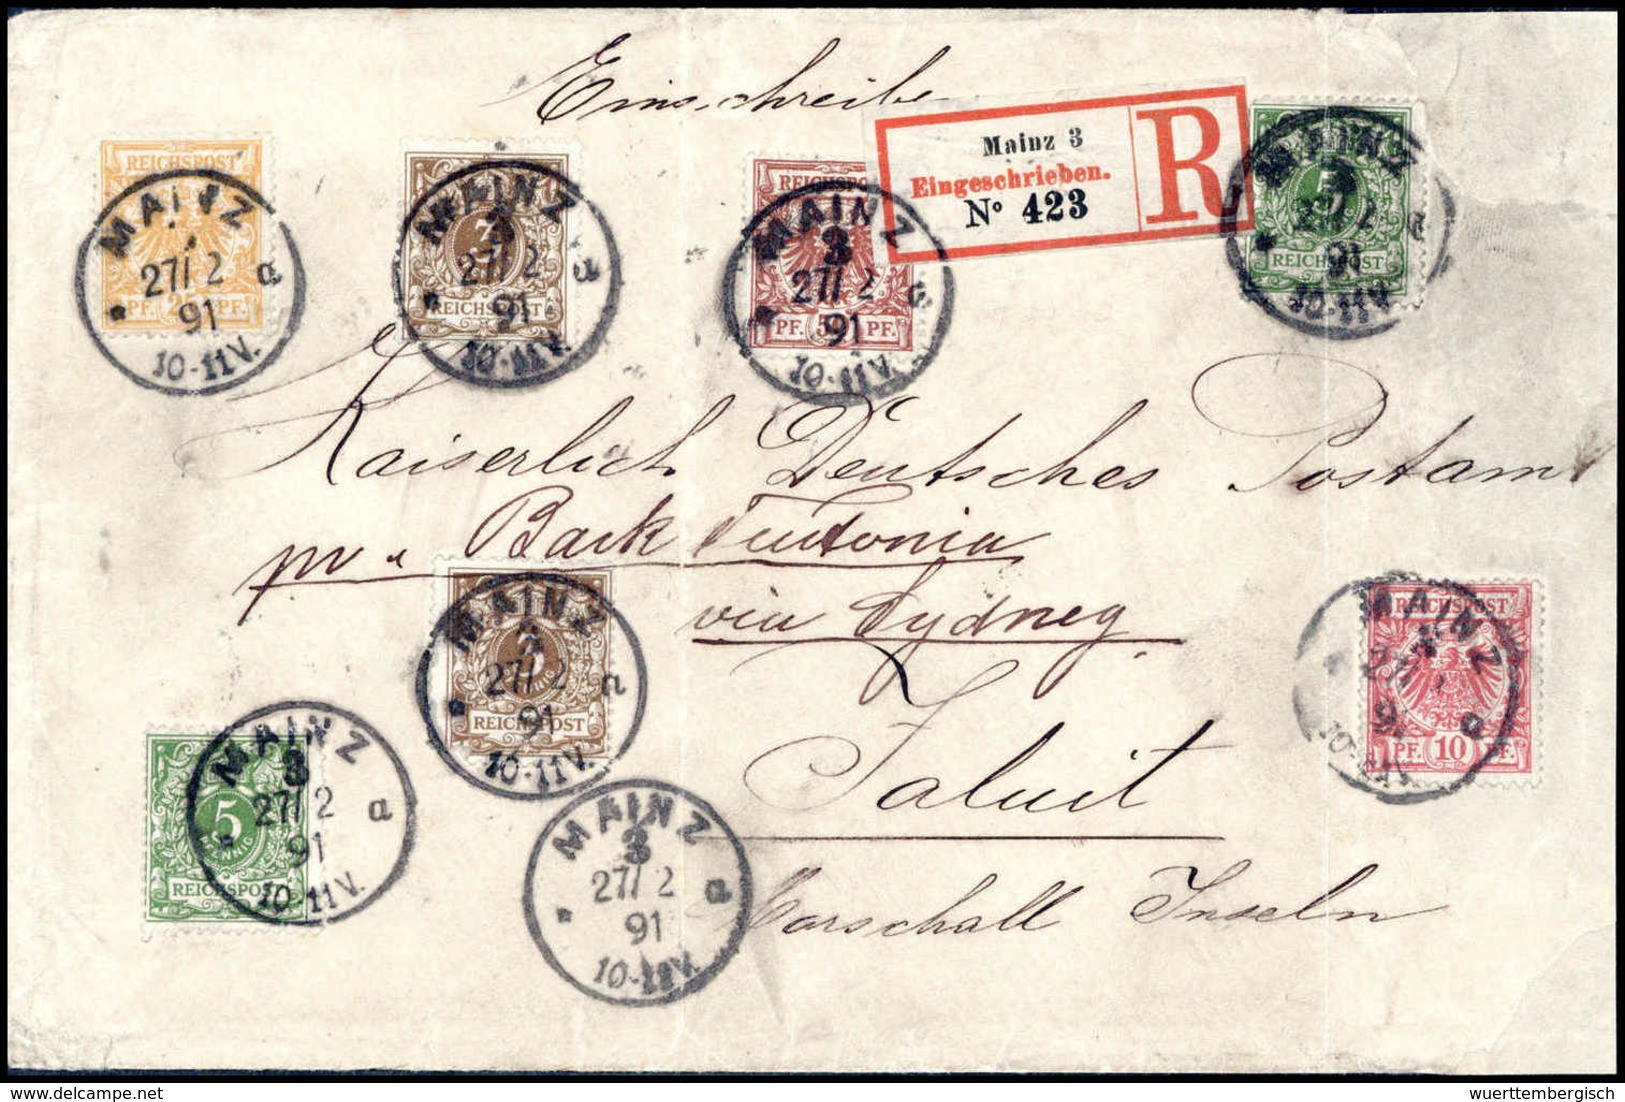 Einschreibe
Mainz 3
Eingeschrieben.
No 423
R
REICHSPOST
PF. PF.
MAINZ
27/2
91
a
10-11V.
3
REICHSPOST
MAINZ
3
27/2
91
a
10-11V.
REICHSPOST
PF. 50 PF.
MAINZ
3
27/2
91
a
10-11V.
5
REICHSPOST
MAINZ
3
27/2
91
a
10-11V.
Kaiserlich Deutsches Postamt
pr. Bark Teutonia
via Sydney
Jaluit
Marschall Inseln
REICHSPOST
MAINZ
3
27/2
91
a
10-11V.
REICHSPOST
PF. 10 PF.
MAINZ
91
a
10-11V.
5
PFENNIG
REICHSPOST
MAINZ
3
27/2
91
a
10-11V.
MAINZ
3
27/2
91
a
10-11V.
© delcampe.net
wuerttembergisch